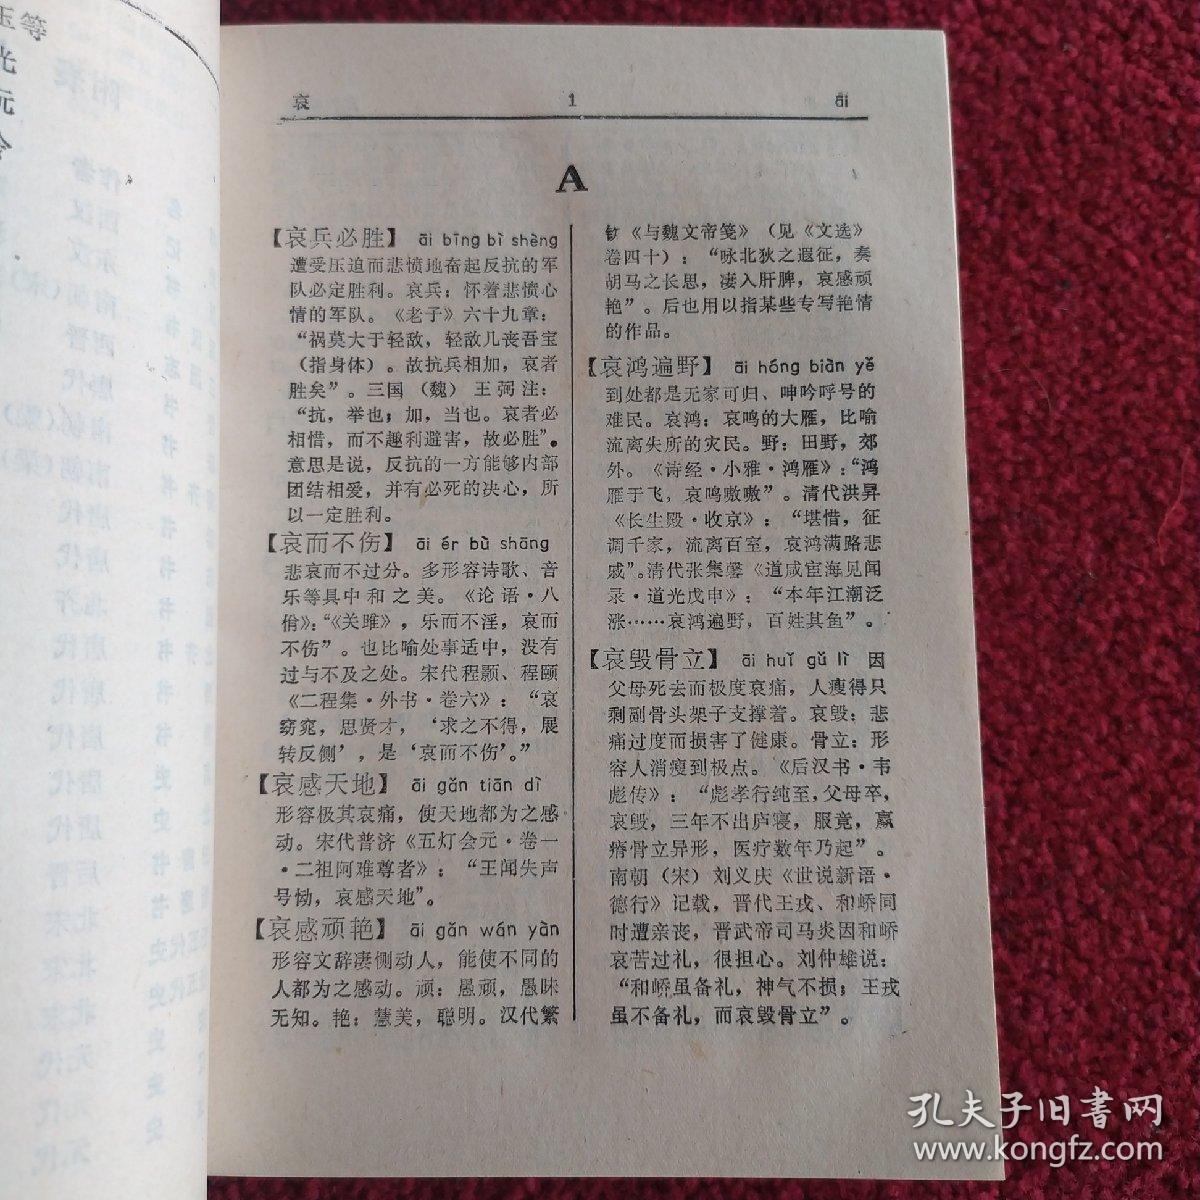 哀 1 āi
A
【哀兵必胜】 āi bīng bì shèng
遭受压迫而悲愤地奋起反抗的军
队必定胜利。哀兵：怀着悲愤心
情的军队。《老子》六十九章：
“祸莫大于轻敌，轻敌几丧吾宝
（指身体）。故抗兵相加，哀者
胜矣”。三国（魏）王弼注：
“抗，举也；加，当也。哀者必
相惜，而不趣利避害，故必胜”。
意思是说，反抗的一方能够内部
团结相爱，并有必死的决心，所
以一定胜利。
【哀而不伤】 āi ér bù shāng
悲哀而不过分。多形容诗歌、音
乐等具中和之美。《论语·八
佾》：“《关雎》，乐而不淫，哀而
不伤”。也比喻处事适中，没有
过与不及之处。宋代程颢、程颐
《二程集·外书·卷六》：“哀
窈窕，思贤才，‘求之不得，展
转反侧’，是‘哀而不伤’。”
【哀感天地】 āi gǎn tiān dì
形容极其哀痛，使天地都为之感
动。宋代普济《五灯会元·卷一
·二祖阿难尊者》：“王闻失声
号恸，哀感天地”。
【哀感顽艳】 āi gǎn wán yàn
形容文辞凄恻动人，能使不同的
人都为之感动。顽：愚顽，愚昧
无知。艳：慧美，聪明。汉代繁
钦《与魏文帝笺》（见《文选》
卷四十）：“咏北狄之遐征，奏
胡马之长思，凄入肝脾，哀感顽
艳”。后也用以指某些专写艳情
的作品。
【哀鸿遍野】 āi hóng biàn yě
到处都是无家可归、呻吟呼号的
难民。哀鸿：哀鸣的大雁，比喻
流离失所的灾民。野：田野，郊
外。《诗经·小雅·鸿雁》：“鸿
雁于飞，哀鸣嗷嗷”。清代洪昇
《长生殿·收京》：“堪惜，征
调千家，流离百室，哀鸿满路悲
戚”。清代张集馨《道咸宦海见闻
录·道光戊申》：“本年江潮泛
涨……哀鸿遍野，百姓其鱼”。
【哀毁骨立】 āi huǐ gǔ lì 因
父母死去而极度哀痛，人瘦得只
剩副骨头架子支撑着。哀毁：悲
痛过度而损害了健康。骨立：形
容人消瘦到极点。《后汉书·韦
彪传》：“彪孝行纯至，父母卒，
哀毁，三年不出庐寝，服竟，羸
瘠骨立异形，医疗数年乃起”。
南朝（宋）刘义庆《世说新语·
德行》记载，晋代王戎、和峤同
时遭亲丧，晋武帝司马炎因和峤
哀苦过礼，很担心。刘仲雄说：
“和峤虽备礼，神气不损；王戎
虽不备礼，而哀毁骨立”。
孔夫子旧书网
www.kongfz.com